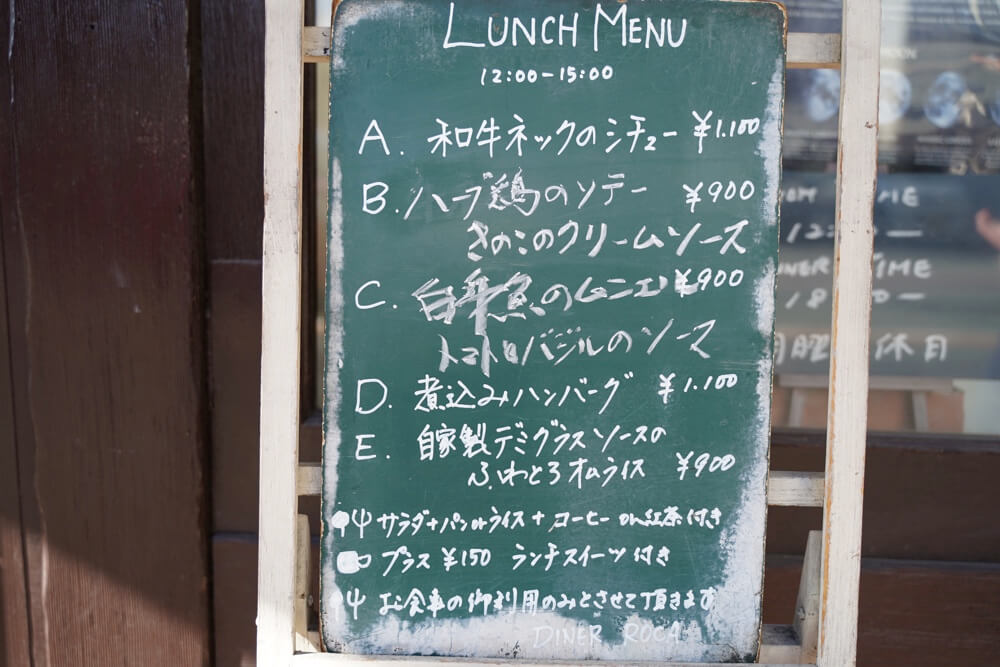 LUNCH MENU
12:00-15:00
A. 和牛ネックのシチュー ¥1.100
B. ハーブ鶏のソテー ¥900
きのこのクリームソース
C. 白身魚のムニエル ¥900
トマトバジルのソース
D. 煮込みハンバーグ ¥1.100
E. 自家製デミグラスソースの
ふわとろオムライス ¥900
サラダ+パンorライス+コーヒーor紅茶付き
プラス ¥150 ランチスイーツ付き
お食事の御利用のみとさせて頂きます
DINER ROCA
TIME
TIME
18
休月